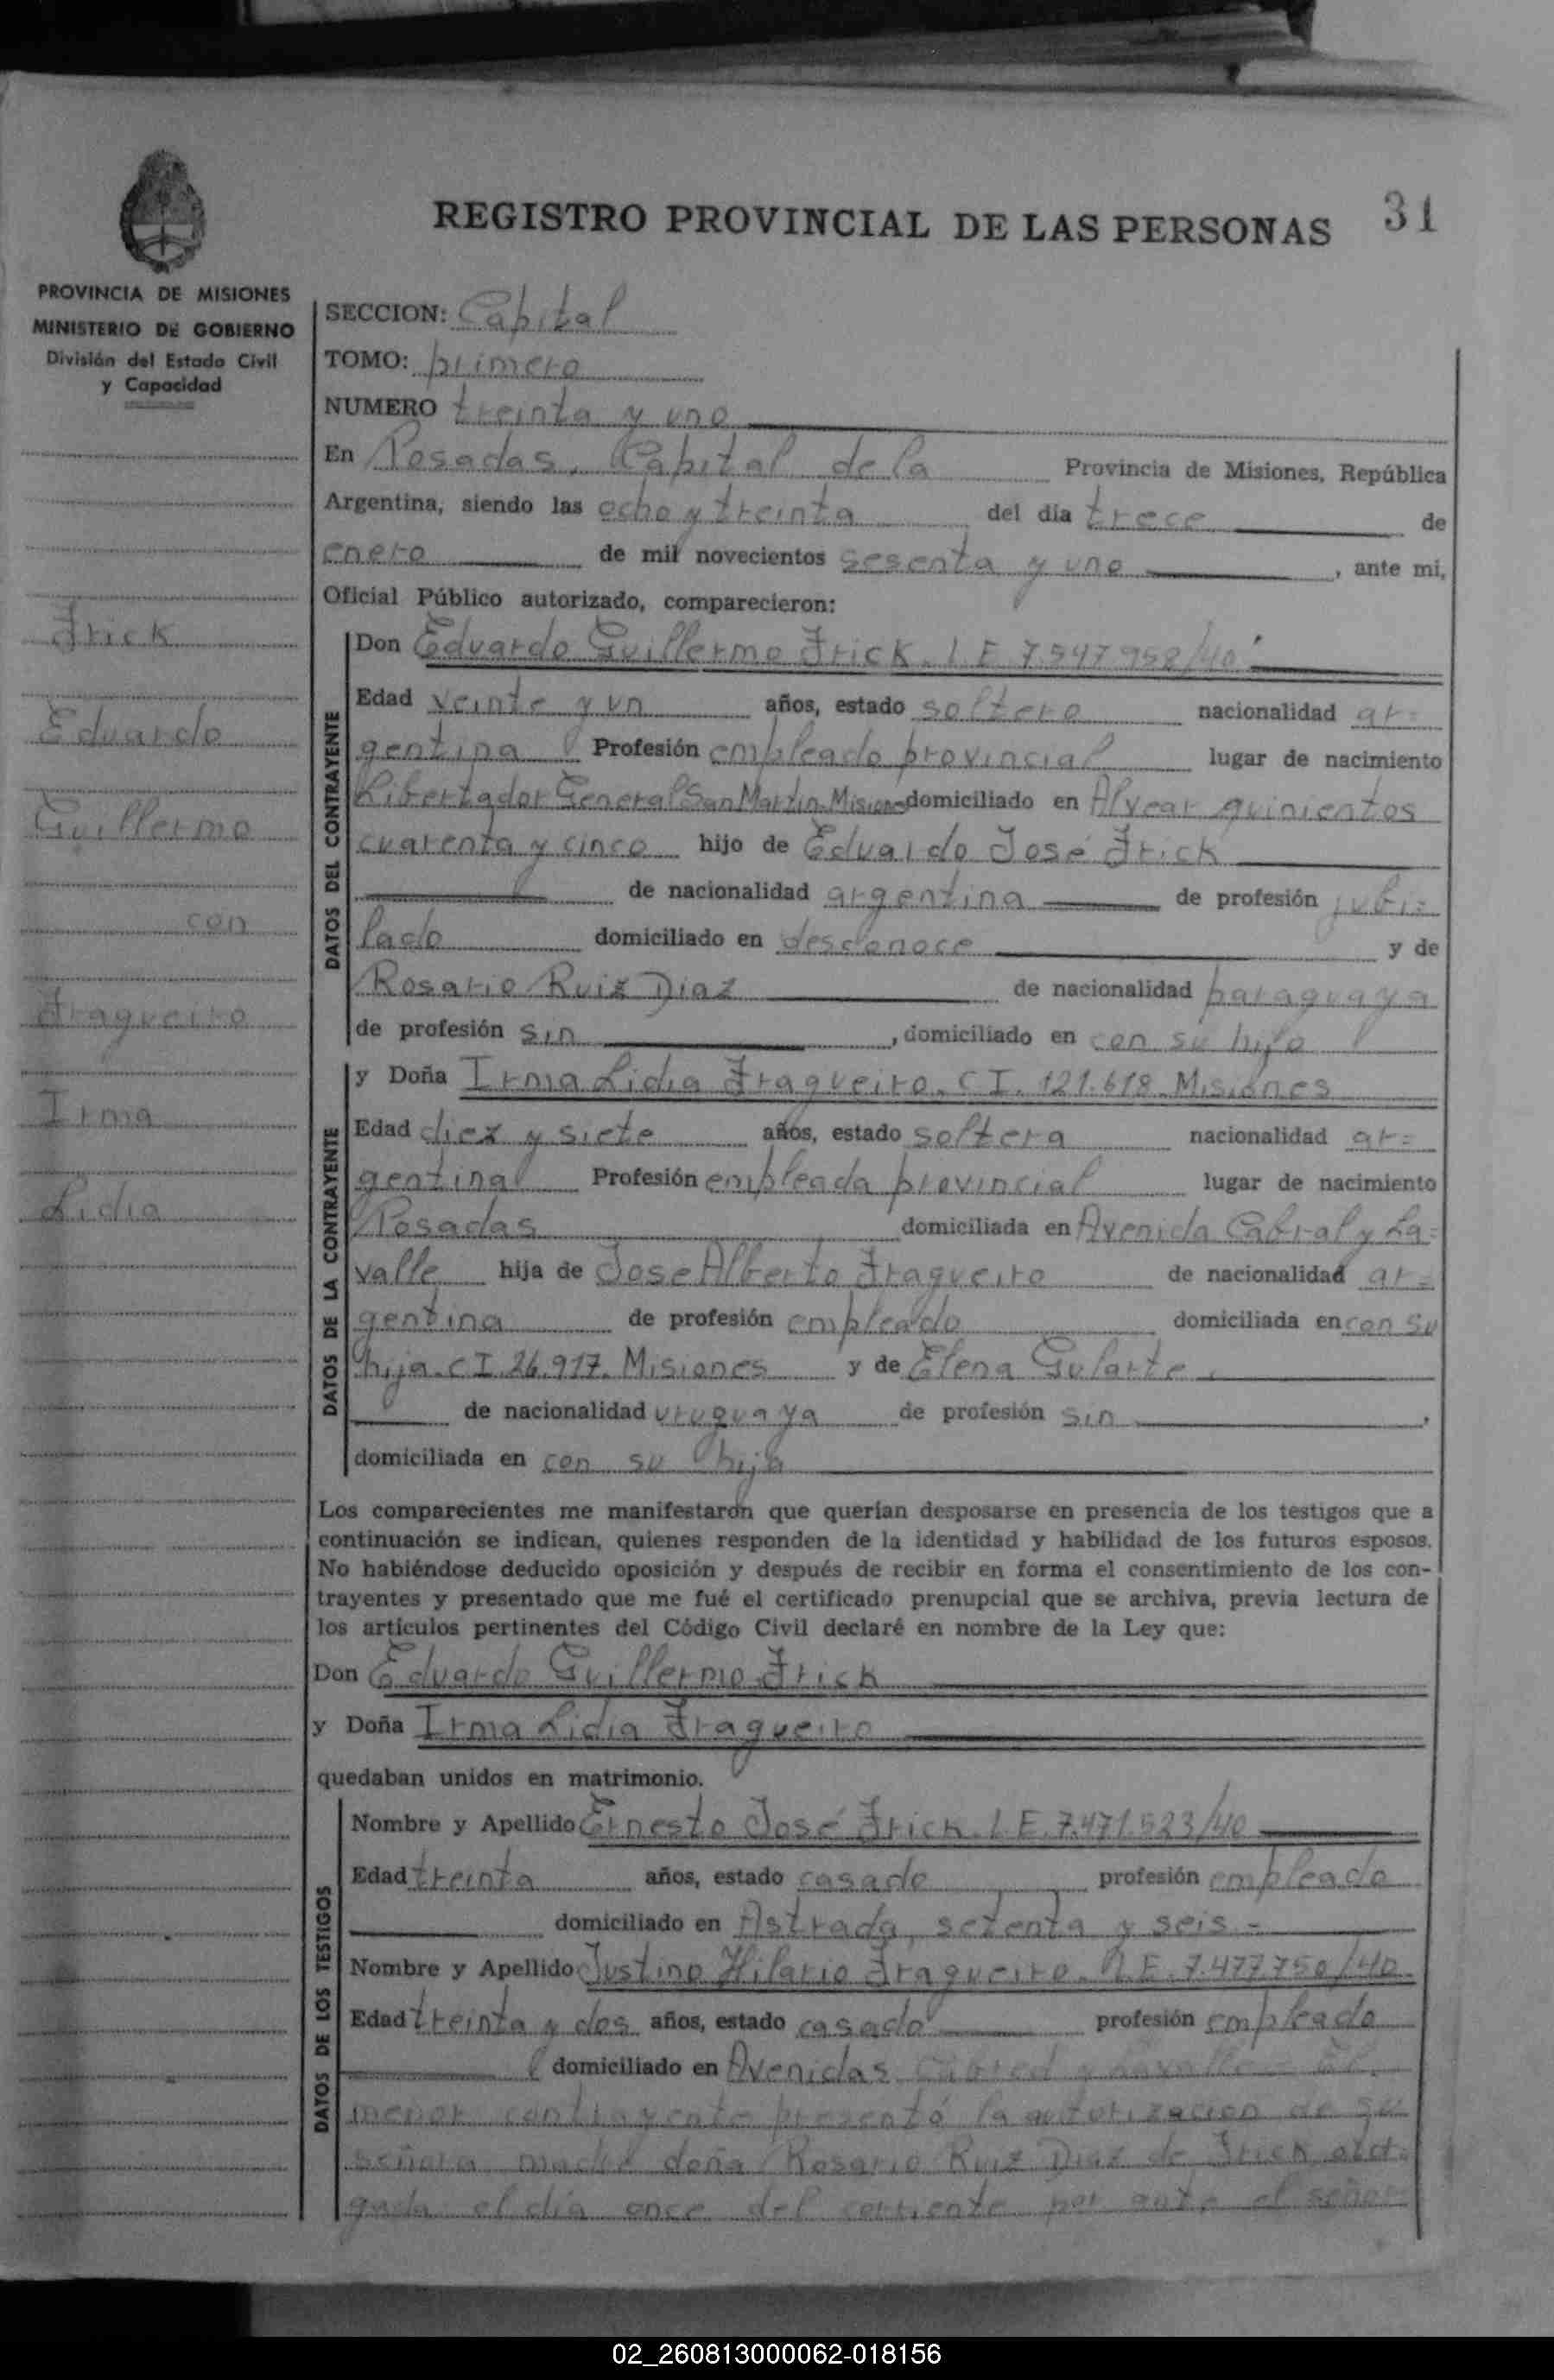 REGISTRO PROVINCIAL DE LAS PERSONAS 31
PROVINCIA DE MISIONES
MINISTERIO DE GOBIERNO
División del Estado Civil
y Capacidad
Frick
Eduardo
Guillermo
con
Fragueiro
Irma
Lidia
SECCION: Capital
TOMO: primero
NUMERO treinta y uno
En Posadas, Capital de la Provincia de Misiones, República
Argentina, siendo las ocho y treinta del día trece de
enero de mil novecientos sesenta y uno, ante mi,
Oficial Público autorizado, comparecieron:
DATOS DEL CONTRAYENTE
Don Eduardo Guillermo Frick. L.E. 7.547.958/40
Edad veinte y un años, estado soltero nacionalidad ar=
gentina Profesión empleado provincial lugar de nacimiento
Libertador General San Martin-Misiones domiciliado en Alvear quinientos
cuarenta y cinco hijo de Eduardo José Frick
de nacionalidad argentina de profesión jubi=
lado domiciliado en desconoce y de
Rosario Ruiz Diaz de nacionalidad paraguaya
de profesión sin, domiciliado en con su hijo
DATOS DE LA CONTRAYENTE
y Doña Irma Lidia Fragueiro. C.I. 121.618. Misiones
Edad diez y siete años, estado soltera nacionalidad ar=
gentina Profesión empleada provincial lugar de nacimiento
Posadas domiciliada en Avenida Cabral y La=
valle hija de José Alberto Fragueiro de nacionalidad ar=
gentina de profesión empleado domiciliada en con su
hija. C.I. 26.917. Misiones y de Elena Gularte,
de nacionalidad uruguaya de profesión sin,
domiciliada en con su hija
Los comparecientes me manifestaron que querían desposarse en presencia de los testigos que a
continuación se indican, quienes responden de la identidad y habilidad de los futuros esposos.
No habiéndose deducido oposición y después de recibir en forma el consentimiento de los con-
trayentes y presentado que me fué el certificado prenupcial que se archiva, previa lectura de
los artículos pertinentes del Código Civil declaré en nombre de la Ley que:
Don Eduardo Guillermo Frick
y Doña Irma Lidia Fragueiro
quedaban unidos en matrimonio.
DATOS DE LOS TESTIGOS
Nombre y Apellido Ernesto José Frick. L.E. 7.471.523/40
Edad treinta años, estado casado profesión empleado
domiciliado en Astrada, setenta y seis -
Nombre y Apellido Justino Hilario Fragueiro. L.E. 7.477.750/40
Edad treinta y dos años, estado casado profesión empleado
domiciliado en Avenidas y Lavalle - El
menor contrayente presentó la autorizacion de su
señora madre doña Rosario Ruiz Diaz de Frick otor=
gada el día once del corriente por ante el señor
02_260813000062-018156